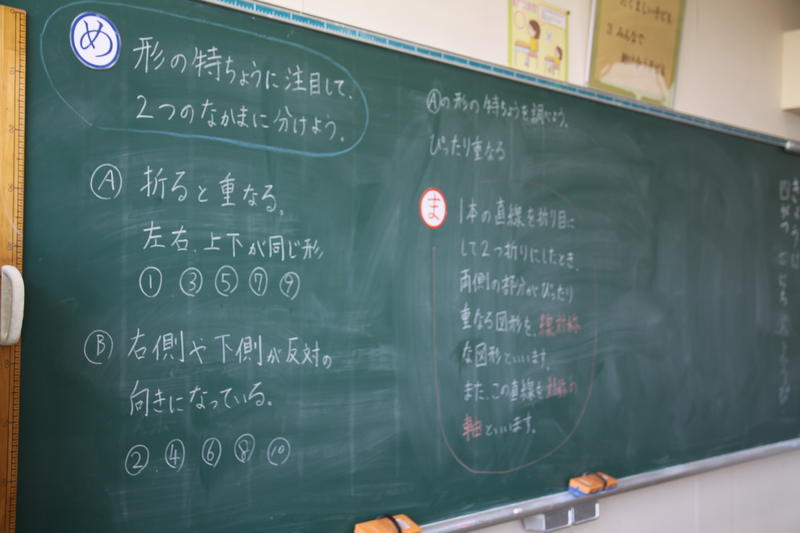 め
形の特ちょうに注目して、
2つのなかまに分けよう。
Ⓐ 折ると重なる。
左右、上下が同じ形
① ③ ⑤ ⑦ ⑨
Ⓑ 右側や下側が反対の
向きになっている。
② ④ ⑥ ⑧ ⑩
Ⓐの形の特ちょうを調べよう。
ぴったり重なる
ま
1本の直線を折り目に
して2つ折りにしたとき、
両側の部分がぴったり
重なる図形を、線対称
な図形といいます。
また、この直線を対称の
軸といいます。
3 みんなで